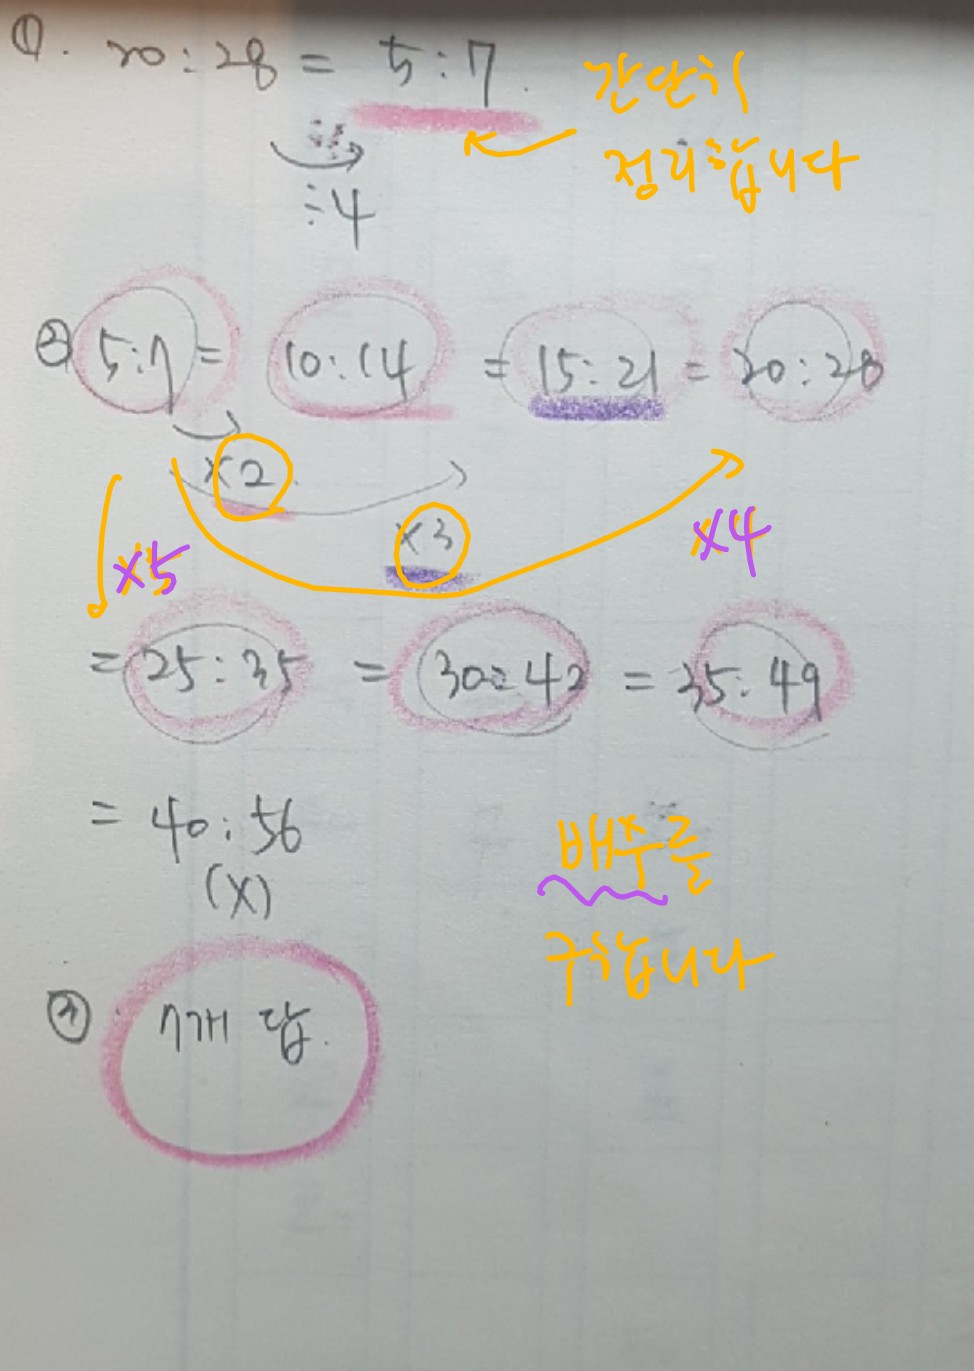 ①. 20:28 = 5:7. 간단히
정리합니다
÷4
② 5:7 = 10:14 = 15:21 = 20:28
×2
×3
×4
×5
= 25:35 = 30:42 = 35:49
= 40:56
(X)
배수를
구합니다
7개 답.